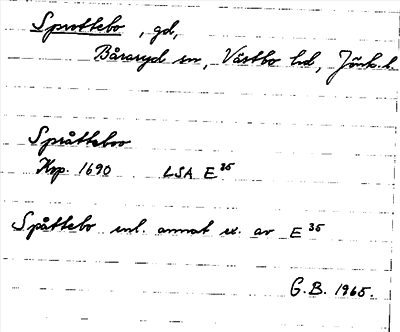 Sprottebo, gd,
Båraryd sn, Västbo hd, Jönk. l.
Språtteboo
Krp. 1690 LSA E 35
Spåttebo enl. annat ex. av E 35
G.B. 1965.